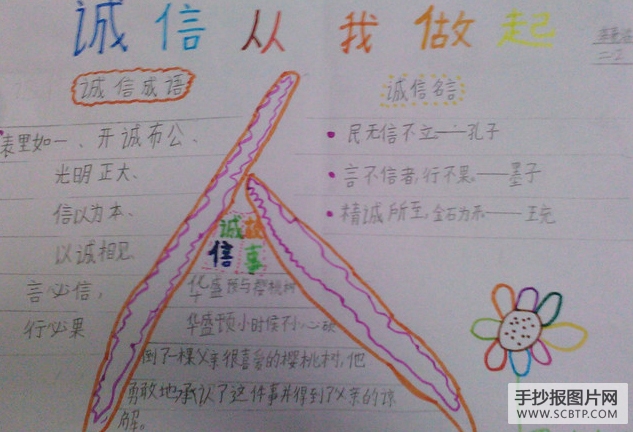 诚信从我做起
诚信成语
表里如一、开诚布公、
光明正大、
信以为本、
以诚相见
言必信，
行必果
诚信名言
民无信不立——孔子
言不信者，行不果。——墨子
精诚所至，金石为开——王充
诚信
故事
华盛顿与樱桃树
华盛顿小时候不小心砍
倒了一棵父亲很喜爱的樱桃树，他
勇敢地承认了这件事并得到了父亲的谅
解。
手抄报图片网
WWW.SCBTP.COM